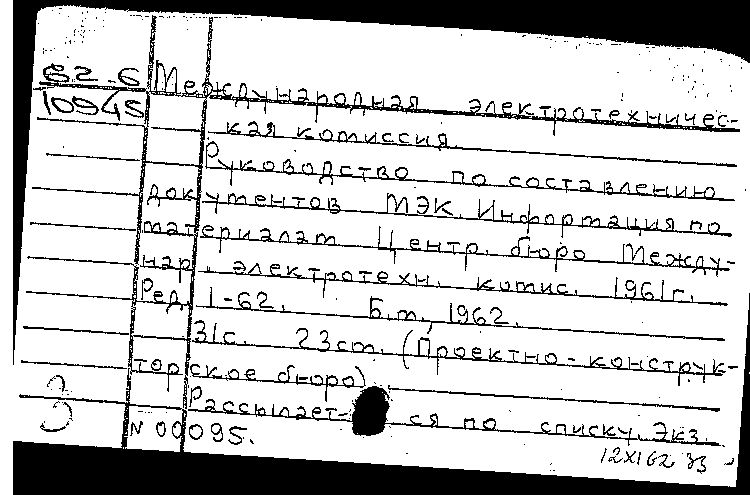 62-6 Международная электротехничес-
10945
кая комиссия.
Руководство по составлению
документов МЭК. Информация по
материалам Центр. бюро Между-
нар. электротехн. комис. 1961г.
Ред. 1-62. Б.м., 1962.
31с. 23cm. (Проектно-конструк-
торское бюро)
Рассылает-ся по списку. Экз.
N 00095.
3